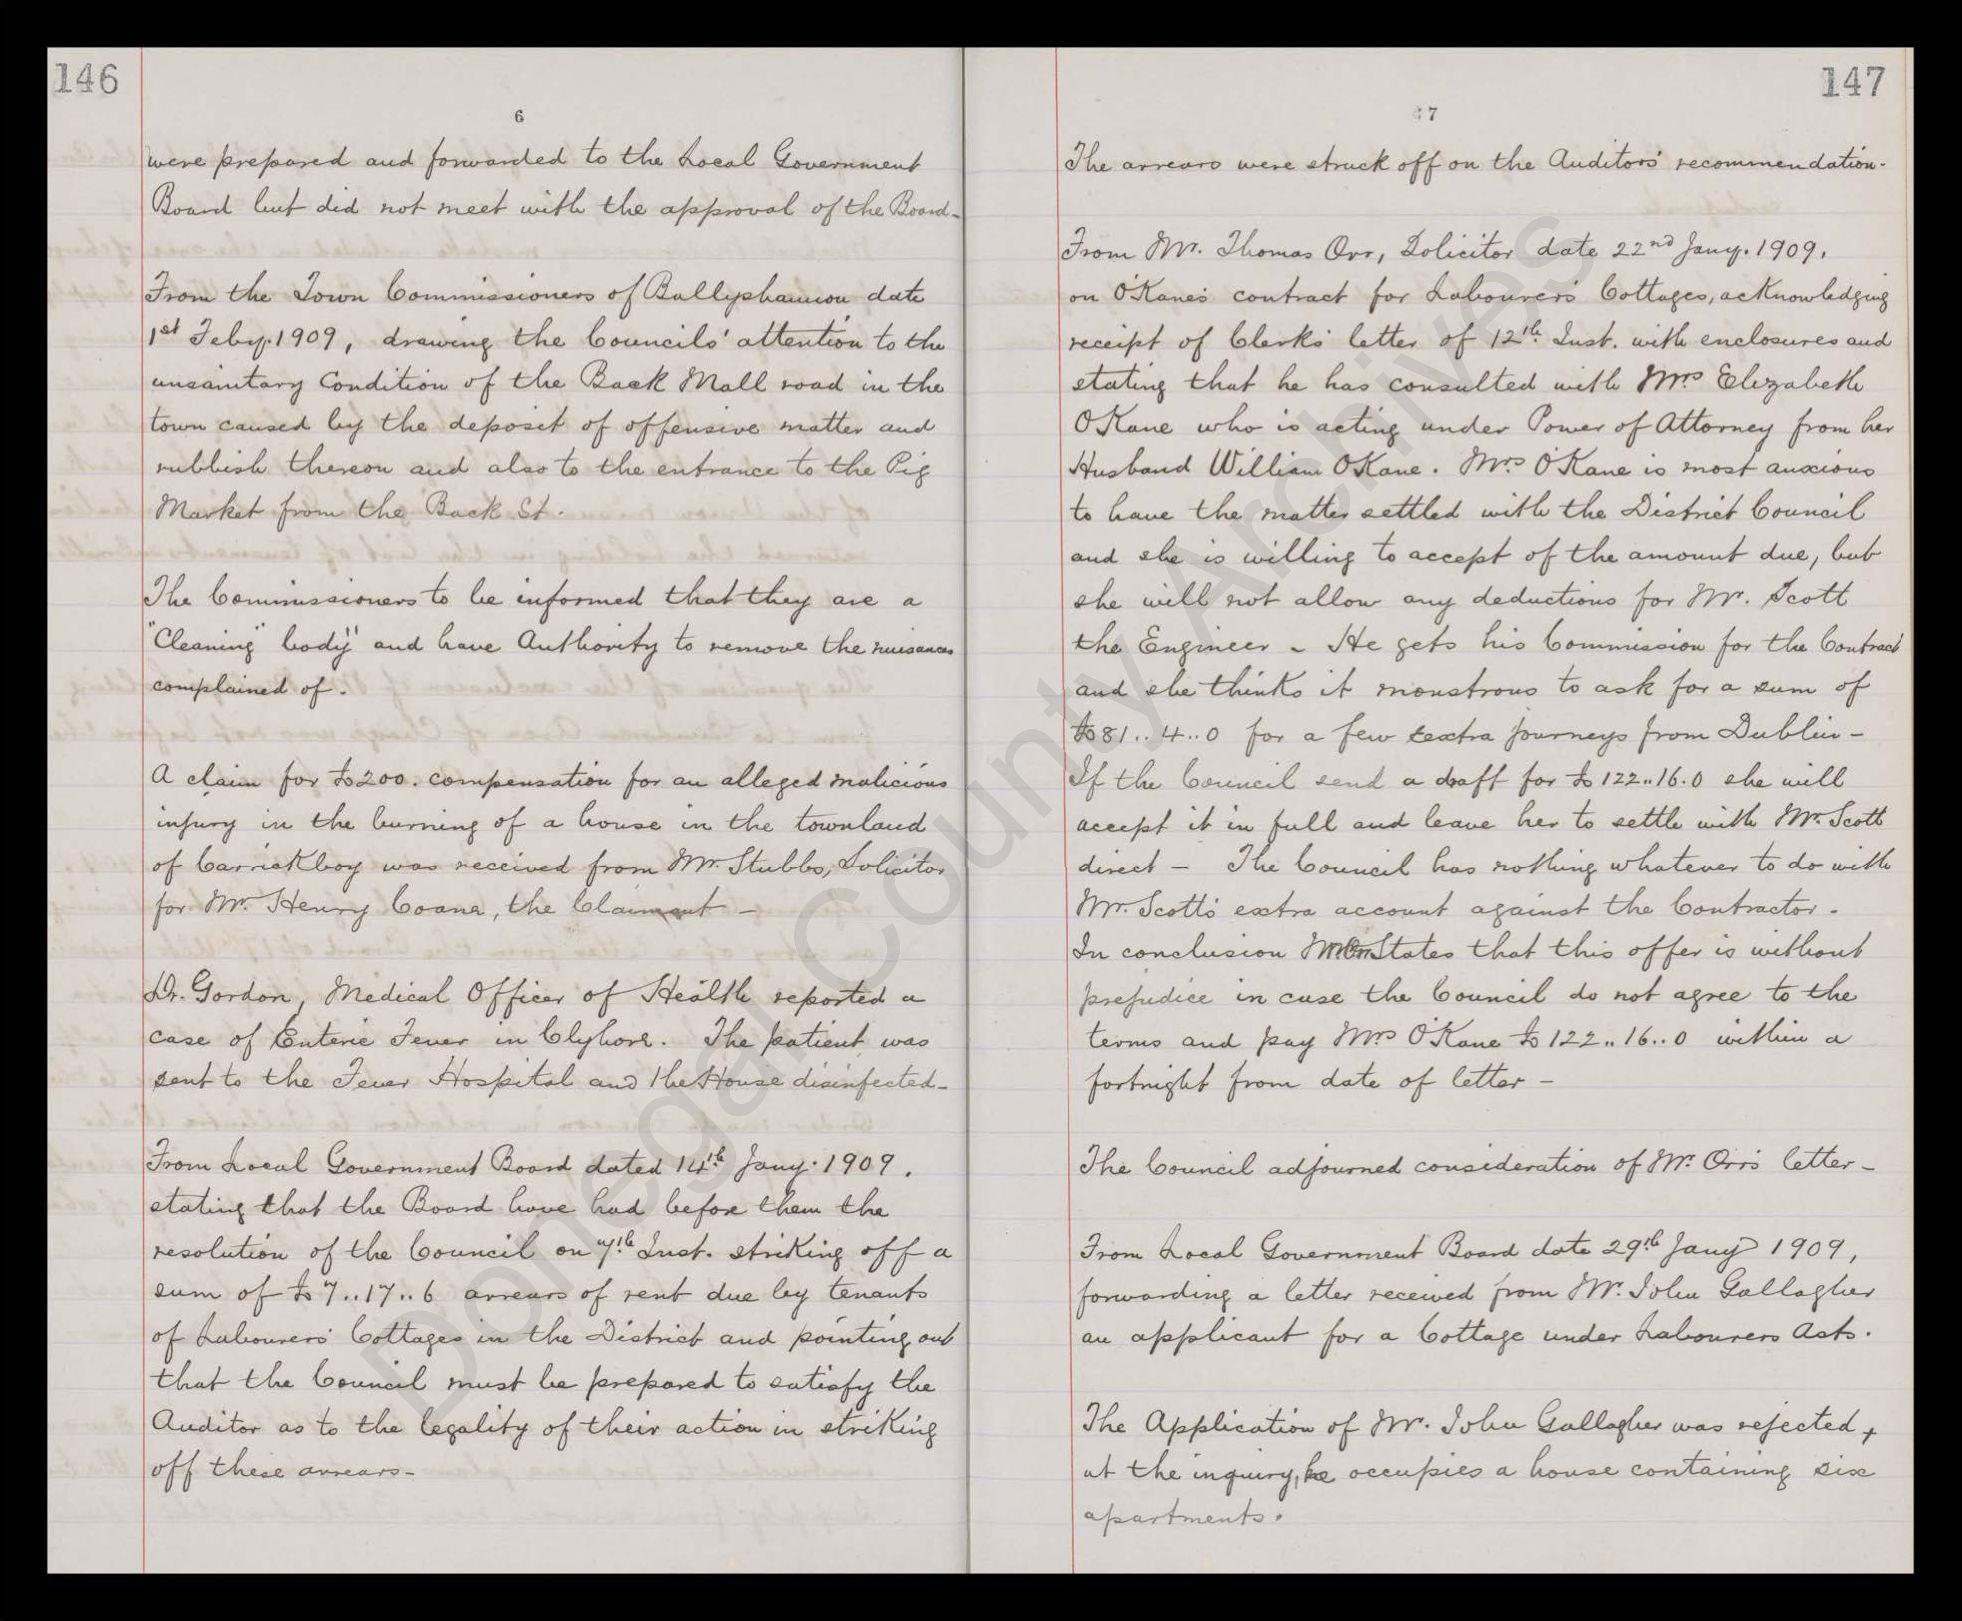 146
6
were prepared and forwarded to the Local Government
Board but did not meet with the approval of the Board-
From the Town Commissioners of Ballyshannon date
1st Feby. 1909, drawing the Councils' attention to the
unsanitary Condition of the Back Mall road in the
town caused by the deposit of offensive matter and
rubbish thereon and also to the entrance to the Pig
Market from the Back St.
The Commissioners to be informed that they are a
"Cleaning" body" and have Authority to remove the nuisances
complained of.
A claim for £200. compensation for an alleged malicious
injury in the burning of a house in the townland
of Carrickboy was received from Mr. Stubbs, Solicitor
for Mr. Henry Coane, the Claimant -
Dr. Gordon, Medical Officer of Health reported a
case of Enteric Fever in Clyhore. The patient was
sent to the Fever Hospital and the House disinfected-
From Local Government Board dated 14th Jany. 1909.
stating that the Board have had before them the
resolution of the Council on 7th Inst. striking off a
sum of £7..17..6 arrears of rent due by tenants
of Labourers' Cottages in the District and pointing out
that the Council must be prepared to satisfy the
Auditor as to the legality of their action in striking
off these arrears-
147
7
The arrears were struck off on the Auditors' recommendation.
From Mr. Thomas Orr, Solicitor date 22nd Jany. 1909.
on O'Kane's contract for Labourers' Cottages, acknowledging
receipt of Clerk's letter of 12th Inst. with enclosures and
stating that he has consulted with Mrs Elizabeth
O'Kane who is acting under Power of Attorney from her
Husband William O'Kane. Mrs O'Kane is most anxious
to have the matter settled with the District Council
and she is willing to accept of the amount due, but
she will not allow any deductions for Mr. Scott
the Engineer - He gets his Commission for the Contract
and she thinks it monstrous to ask for a sum of
£81..4..0 for a few extra journeys from Dublin -
If the Council send a draft for £122..16.0 she will
accept it in full and leave her to settle with Mr. Scott
direct - The Council has nothing whatever to do with
Mr. Scott's extra account against the Contractor.
In conclusion Mr Orr States that this offer is without
prejudice in case the Council do not agree to the
terms and pay Mrs O'Kane £122..16..0 within a
fortnight from date of letter -
The Council adjourned consideration of Mr. Orr's letter-
From Local Government Board date 29th Jany 1909,
forwarding a letter received from Mr. John Gallagher
an applicant for a Cottage under Labourers Acts.
The Application of Mr. John Gallagher was rejected,
at the inquiry, he occupies a house containing six
apartments.
Donegal County Archives